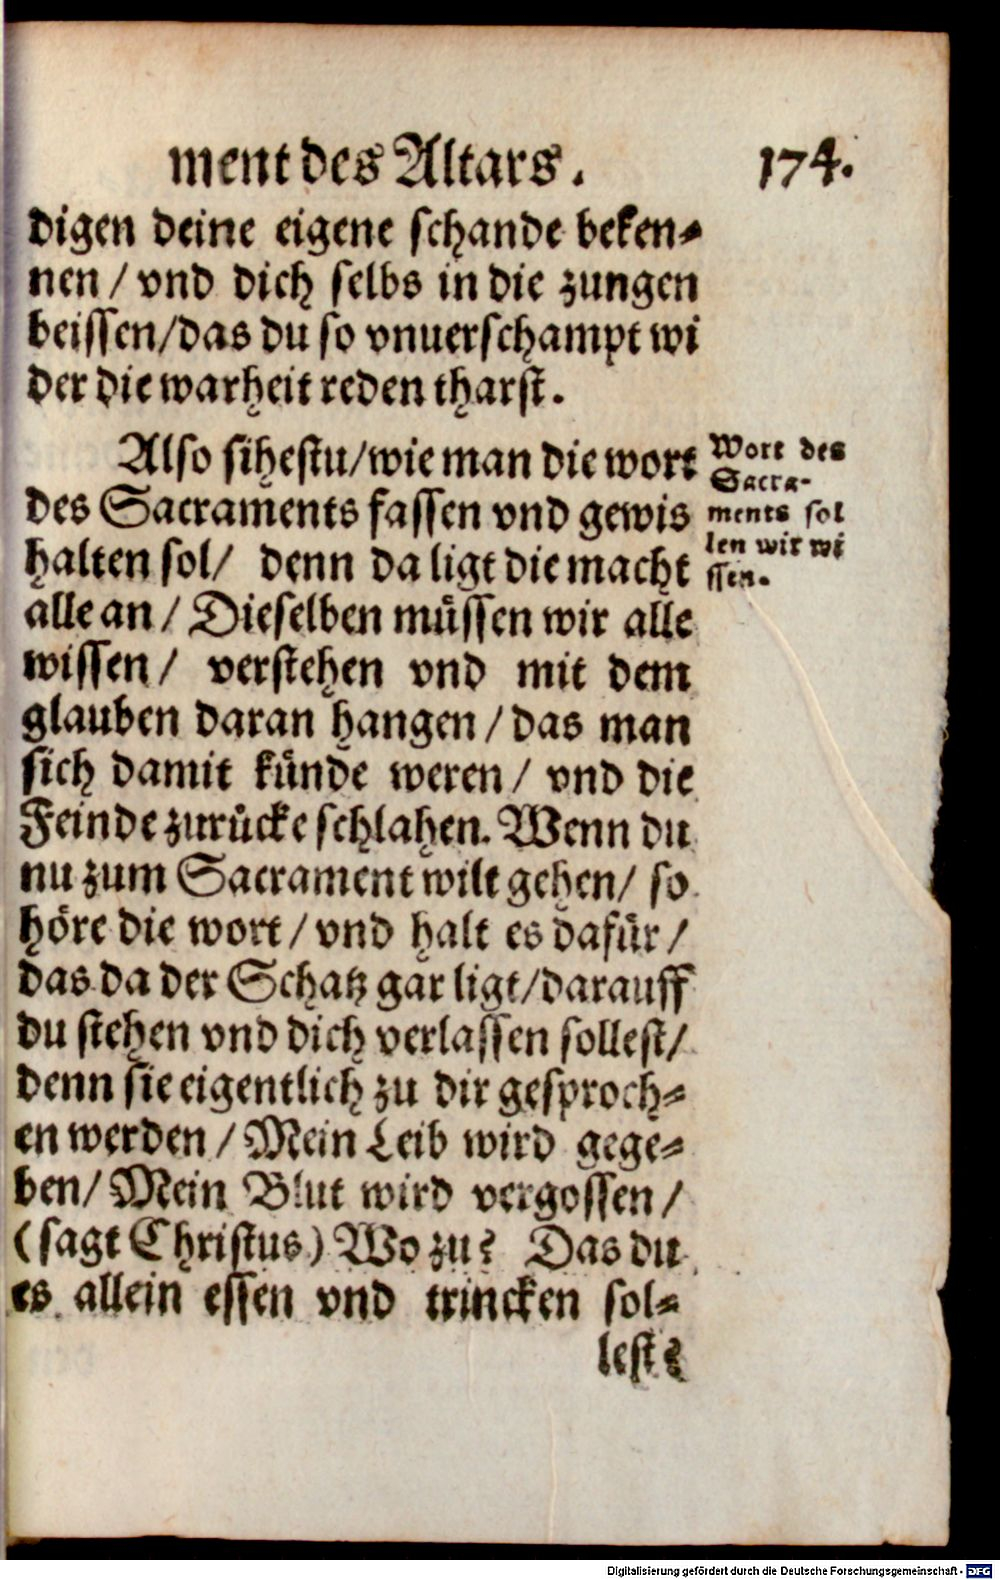 ment des Altars. 174.
digen deine eigene schande beken-
nen / vnd dich selbs in die zungen
beissen/das du so vnuerschampt wi
der die warheit reden tharst.
Also sihestu/wie man die wort
des Sacraments fassen vnd gewis
halten sol/ denn da ligt die macht
alle an / Dieselben müssen wir alle
wissen / verstehen vnd mit dem
glauben daran hangen / das man
sich damit künde weren / vnd die
Feinde zurücke schlahen. Wenn du
nu zum Sacrament wilt gehen/ so
höre die wort / vnd halt es dafür /
das da der Schatz gar ligt/darauff
du stehen vnd dich verlassen sollest/
denn sie eigentlich zu dir gesproch-
en werden / Mein Leib wird gege-
ben/ Mein Blut wird vergossen /
(sagt Christus) Wo zu? Das du
es allein essen vnd trincken sol-
lest?
Wort des
Sacra-
ments sol
len wir wi
ssen.
Digitalisierung gefördert durch die Deutsche Forschungsgemeinschaft - DFG